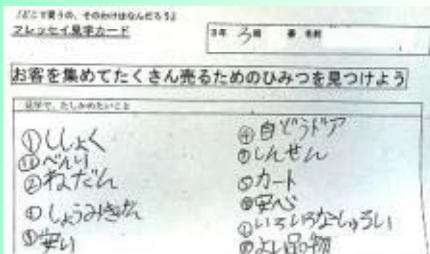 『どこで買うの、そのわけはなんだろう』
フレッセイ見学カード
3年 3組 番 名前
お客を集めてたくさん売るためのひみつを見つけよう
見学で、たしかめたいこと
①ししょく
⑪べんり
②ねだん
しょうみきげん
安い
④自どうドア
しんせん
カート
安心
いろいろなしゅるい
よい品物